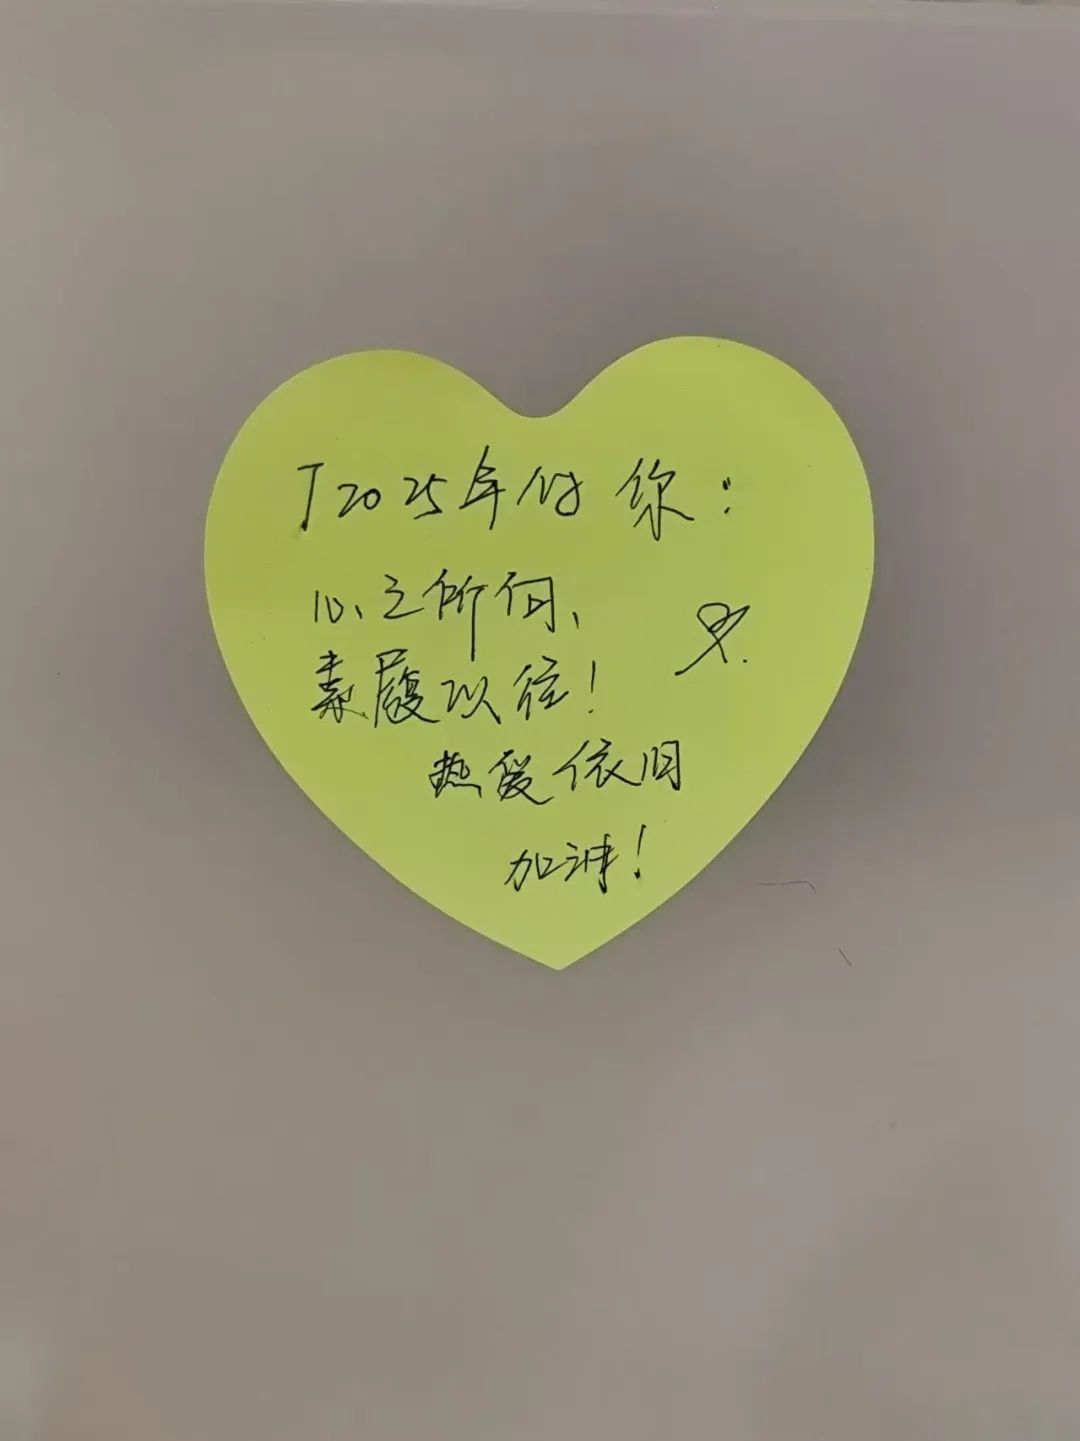 J2025年付你：
心之所向、
素履以往！
热爱依旧
加油！